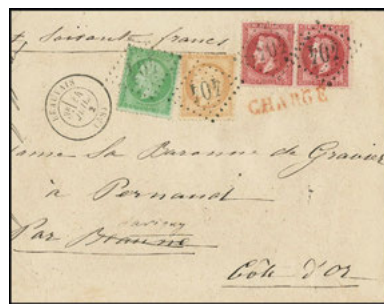 soixante francs
BEAUVAIS
404
404
404
CHARGÉ
Madame La Baronne de Gravier
à Pernand
Savigny
Par Beaune
Côte d'Or